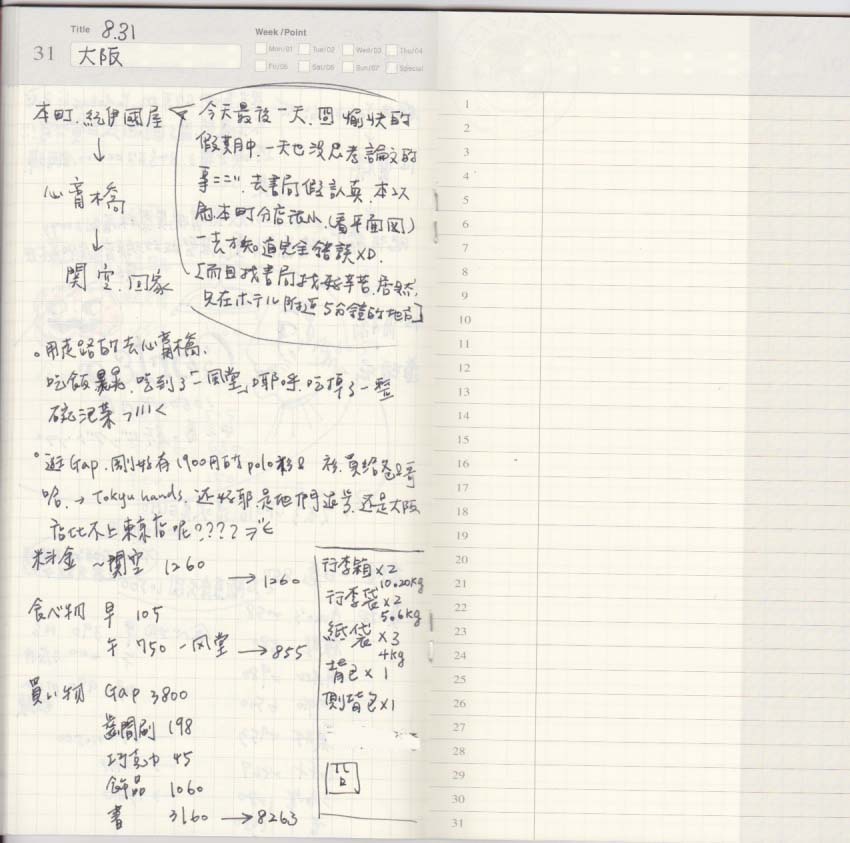 Title 8.31
31 大阪
Week / Point
Mon/01 Tue/02 Wed/03 Thu/04
Fri/05 Sat/06 Sun/07 Special
本町.紀伊國屋
↓
心齋橋
↓
関空.回家
今天最後一天.因愉快的
假期中.一天也沒思考論文的
事=="".去書局假認真.本以
為本町分店很小.(看平面図)
一去才知道完全錯誤XD.
[而且找書局找好辛苦.居然
只在ホテル附近5分鐘的地方]
。用走路的去心齋橋.
吃飯.吃到了「一風堂」耶呼.吃掉了一整
碗泡菜>///<
。逛Gap.剛好有1900円的polo衫.買給爸&哥
哈.→Tokyu hands.还好耶.是他們退步.还是大阪
店比不上東京店呢????
料金 ~関空 1260
→1260
食べ物 早 105
午 750 一风堂 →855
買い物 Gap 3800
齒間刷 198
巧克力 45
飾品 1060
書 3160 →8263
行李箱×2
10.20kg
行李袋×2
5.6kg
紙袋×3
4kg
背包×1
側背包×1
1
2
3
4
5
6
7
8
9
10
11
12
13
14
15
16
17
18
19
20
21
22
23
24
25
26
27
28
29
30
31